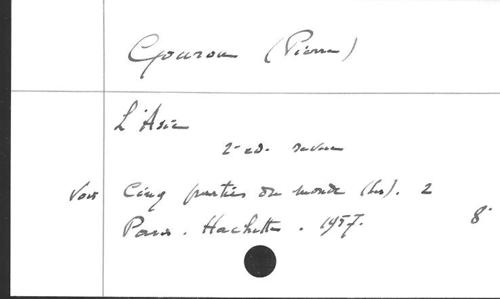 Gourou (Pierre)
L'Asie
2e ed. revue
Voir Cinq parties du monde (Les). 2
Paris. Hachette. 1957. 8°